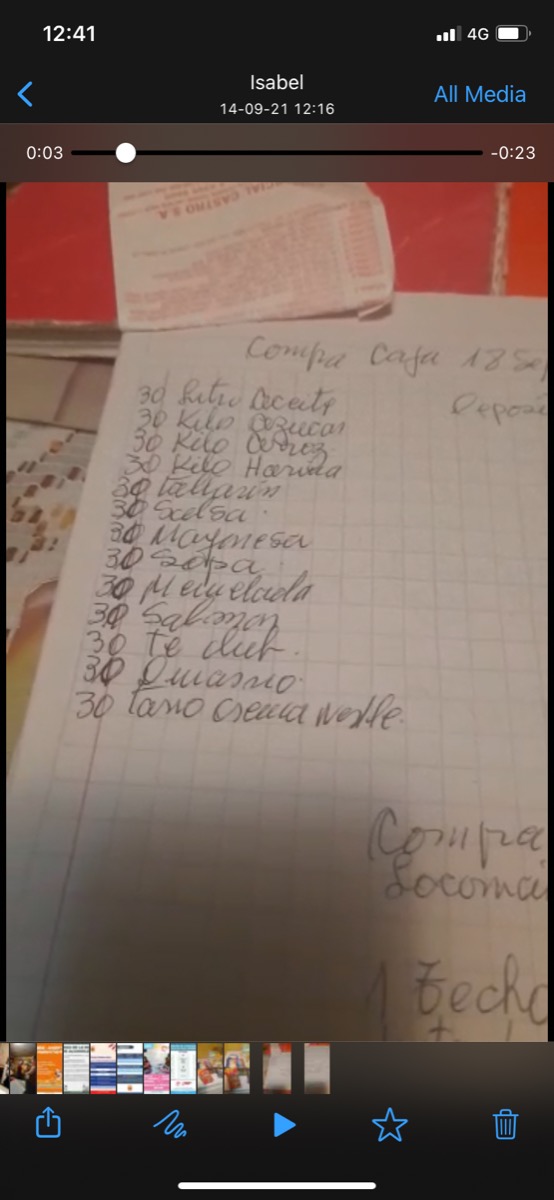 12:41
4G
Isabel
14-09-21 12:16
All Media
0:03
-0:23
CIAL CASTRO S.A
Compra Caja 18 Sep
Deposi
30 Litro Aceite
30 Kilo Azucar
30 Kilo Arroz
30 Kilo Harina
30 Tallarin
30 Salsa
30 Mayonesa
30 Sopa
30 Mermelada
30 Salmon
30 Te club.
30
30 Tarro crema Nestle.
Compra
Locomo
1 Techo